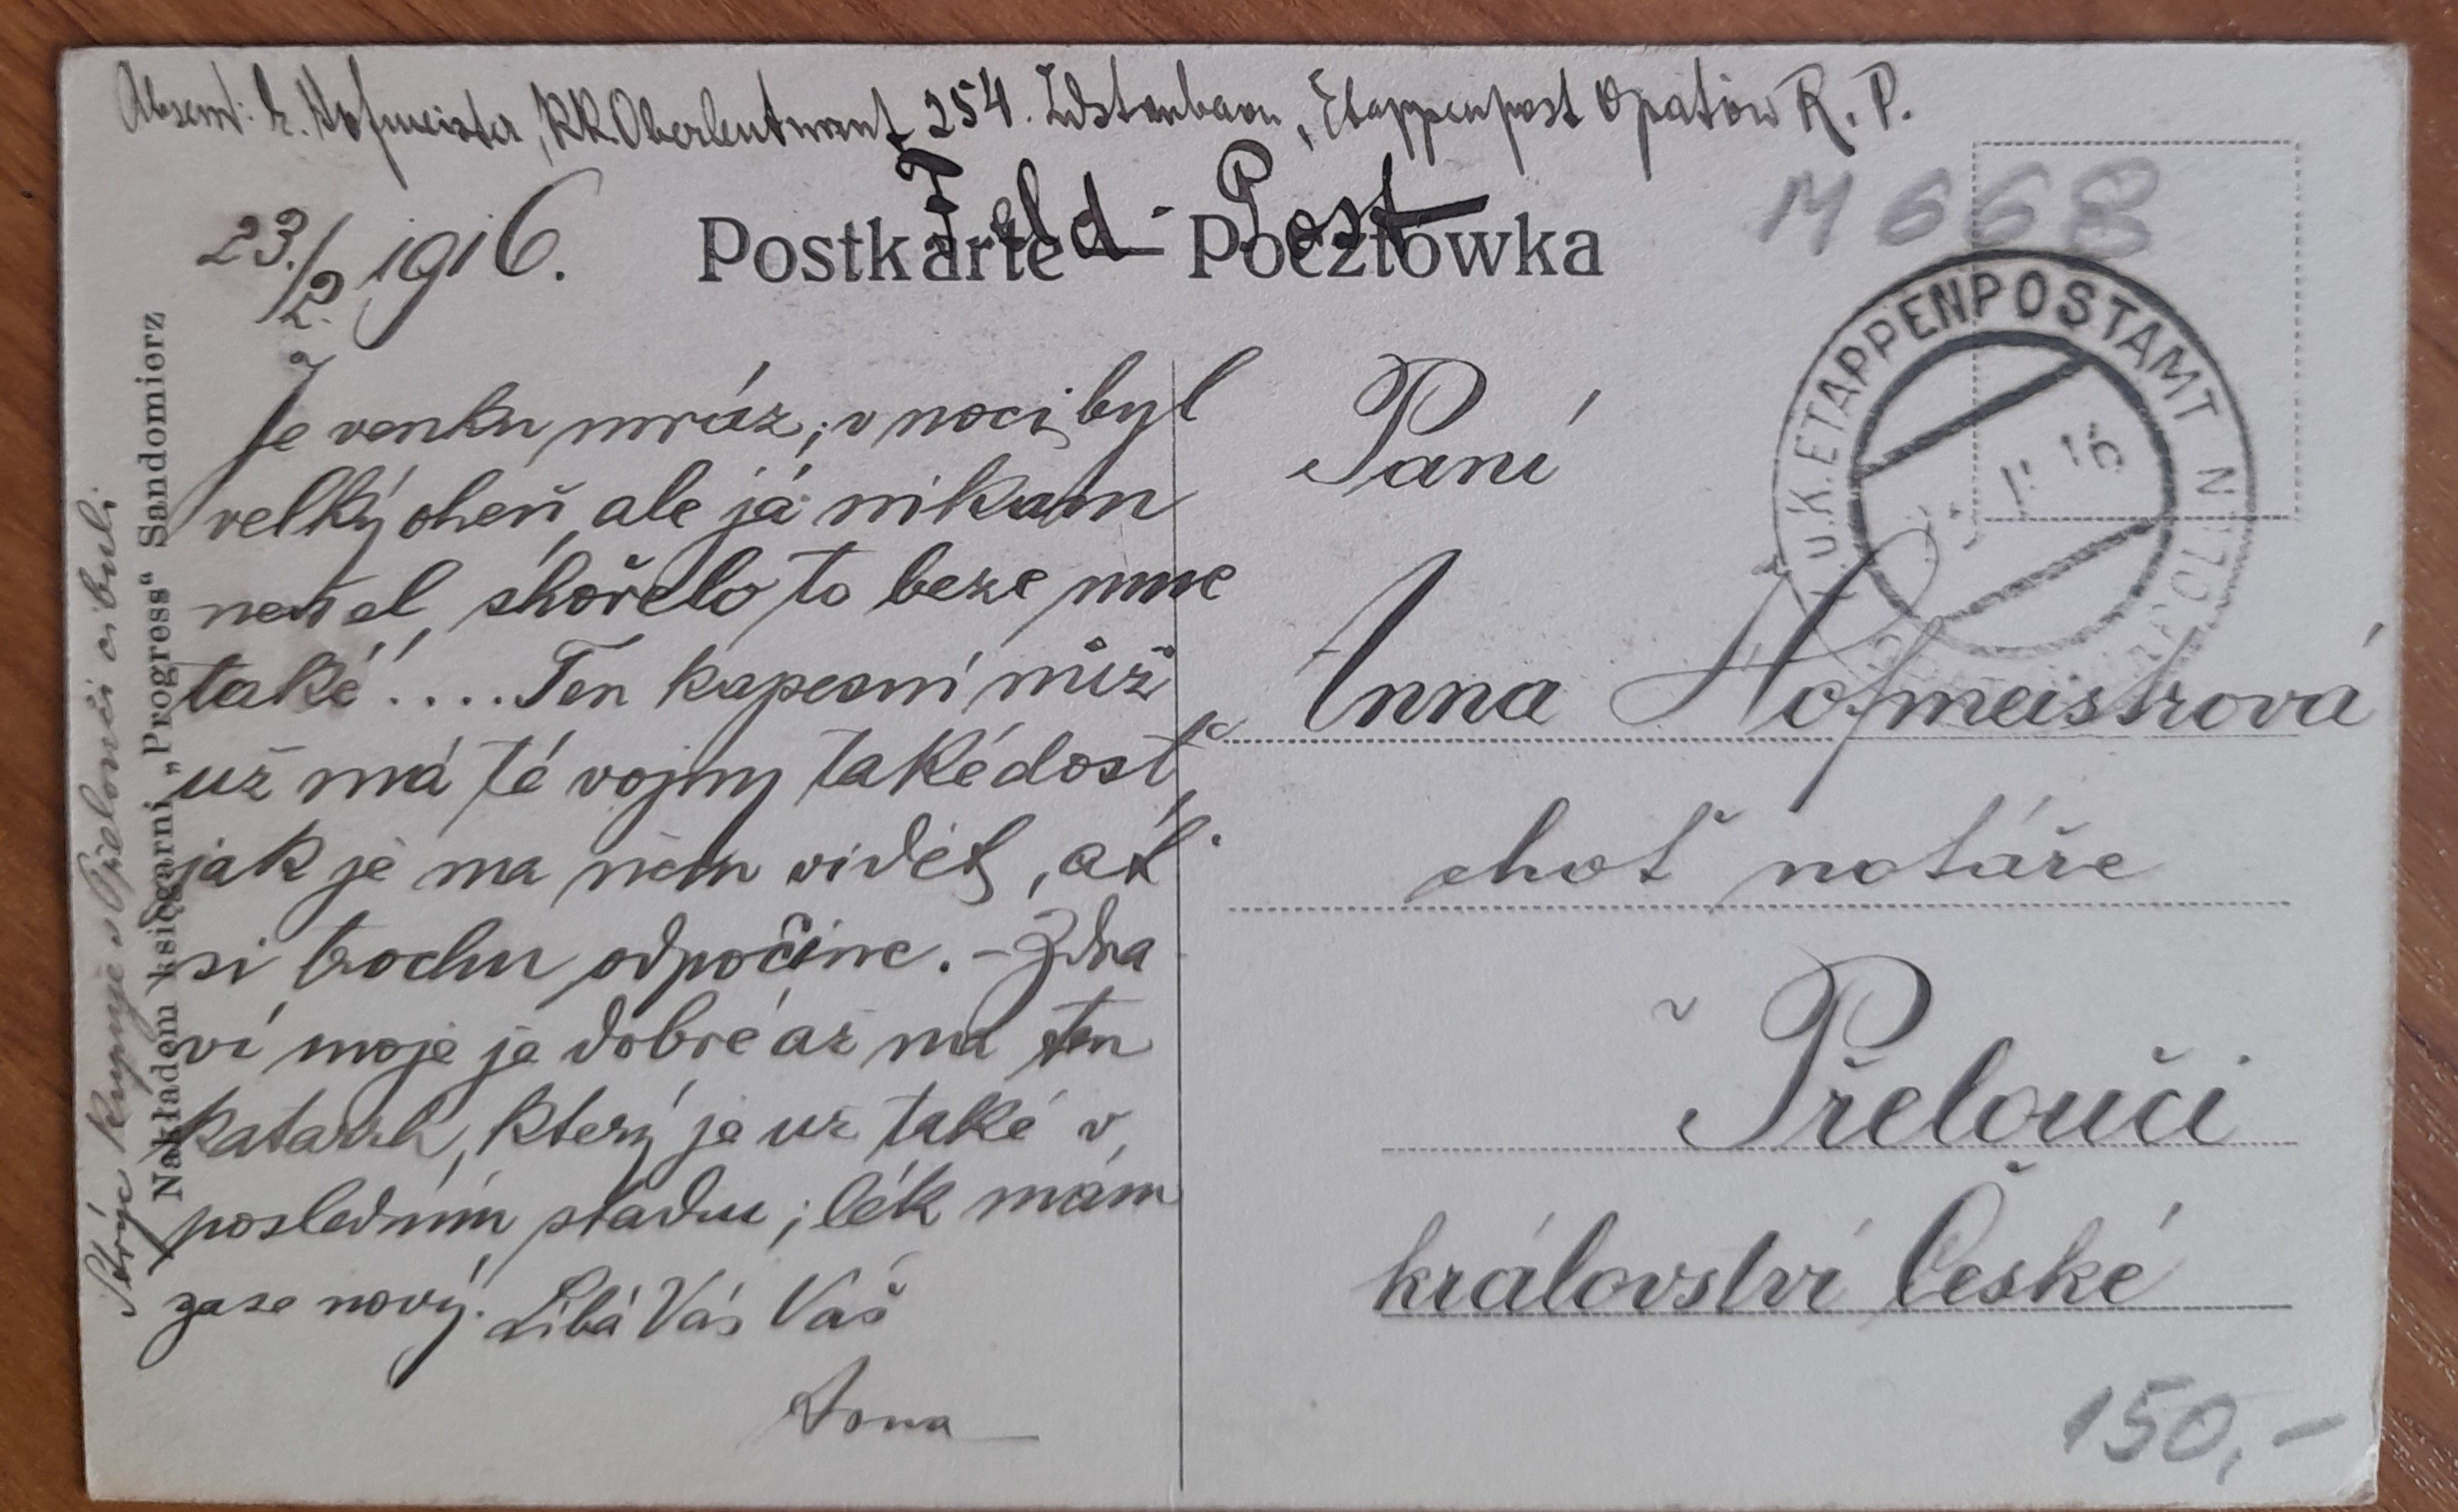 Absend: Hofmeister, KK. Oberleutnant 254. Etappenpost Opatów R. P.
Feld - Post
Postkarte - Pocztówka
23./2. 1916.
M 668
K. U. K. ETAPPENPOSTAMT
II 16
Je venku mráz; v noci byl
velký oheň, ale já nikam
nešel, shořelo to beze mne
také .... Ten kapesní nůž
už má té vojny také dost,
jak je na něm vidět, ať
si trochu odpočine. - Zdra
ví moje je dobré až na ten
katarrh, který je už také v
posledním stadiu; lék mám
zase nový. Líbá Vás Váš
Paní
Anna Hofmeistrová
choť notáře
v Přelouči
království České
150,-
Nakładem księgarni „Progress“ Sandomierz
Strýc kupuje v Přelouči cibuli